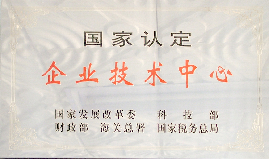 国家认定
企业技术中心
国家发展改革委 科技部
财政部 海关总署 国家税务总局